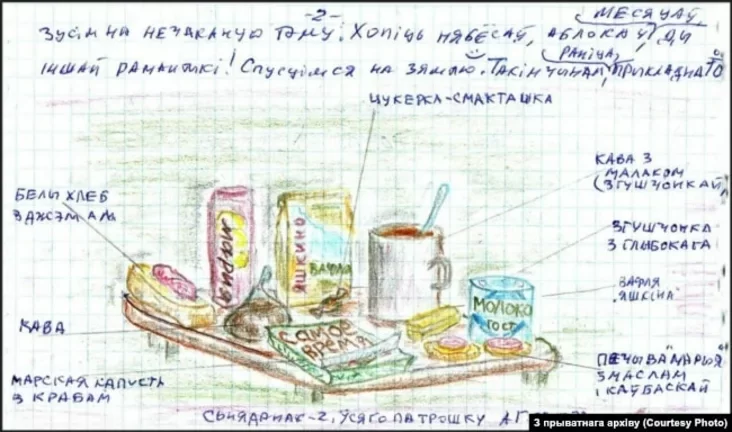 -2-
МЕСЯЦАЎ,
ЗУСІМ НА НЕЧАКАНУЮ ТЭМУ. ХОПІЦЬ НЯБЁСАЎ, АБЛОКАЎ, ДЫ
РАНІЦА,
ІНШАЙ РАМАНТЫКІ! СПУСЦІМСЯ НА ЗЯМЛЮ. ТАКІМ ЧЫНАМ, ПРЫКЛАДНА ТО
ЦУКЕРКА-СМАКТАШКА
КАВА З
МАЛАКОМ
(ЗГУШЧОНКАЙ)
БЕЛЫ ХЛЕБ
З ДЖЭМАМ
ЗГУШЧОНКА
З ГЛЫБОКАГА
МАРИЯ
ЯШКИНО
ВАФЛИ
ВАФЛЯ
ЯШКІНА
МОЛОКО
ГОСТ
КАВА
САМОЕ
ВРЕМЯ
МАРСКАЯ КАПУСТА
З КРАБАМ
ПЕЧЫВА МАРЫЯ
З МАСЛАМ
І КАЎБАСКАЙ
СЬНЯДАНАК-2, ЎСЯГО ПАТРОШКУ
З прыватнага архіву (Courtesy Photo)